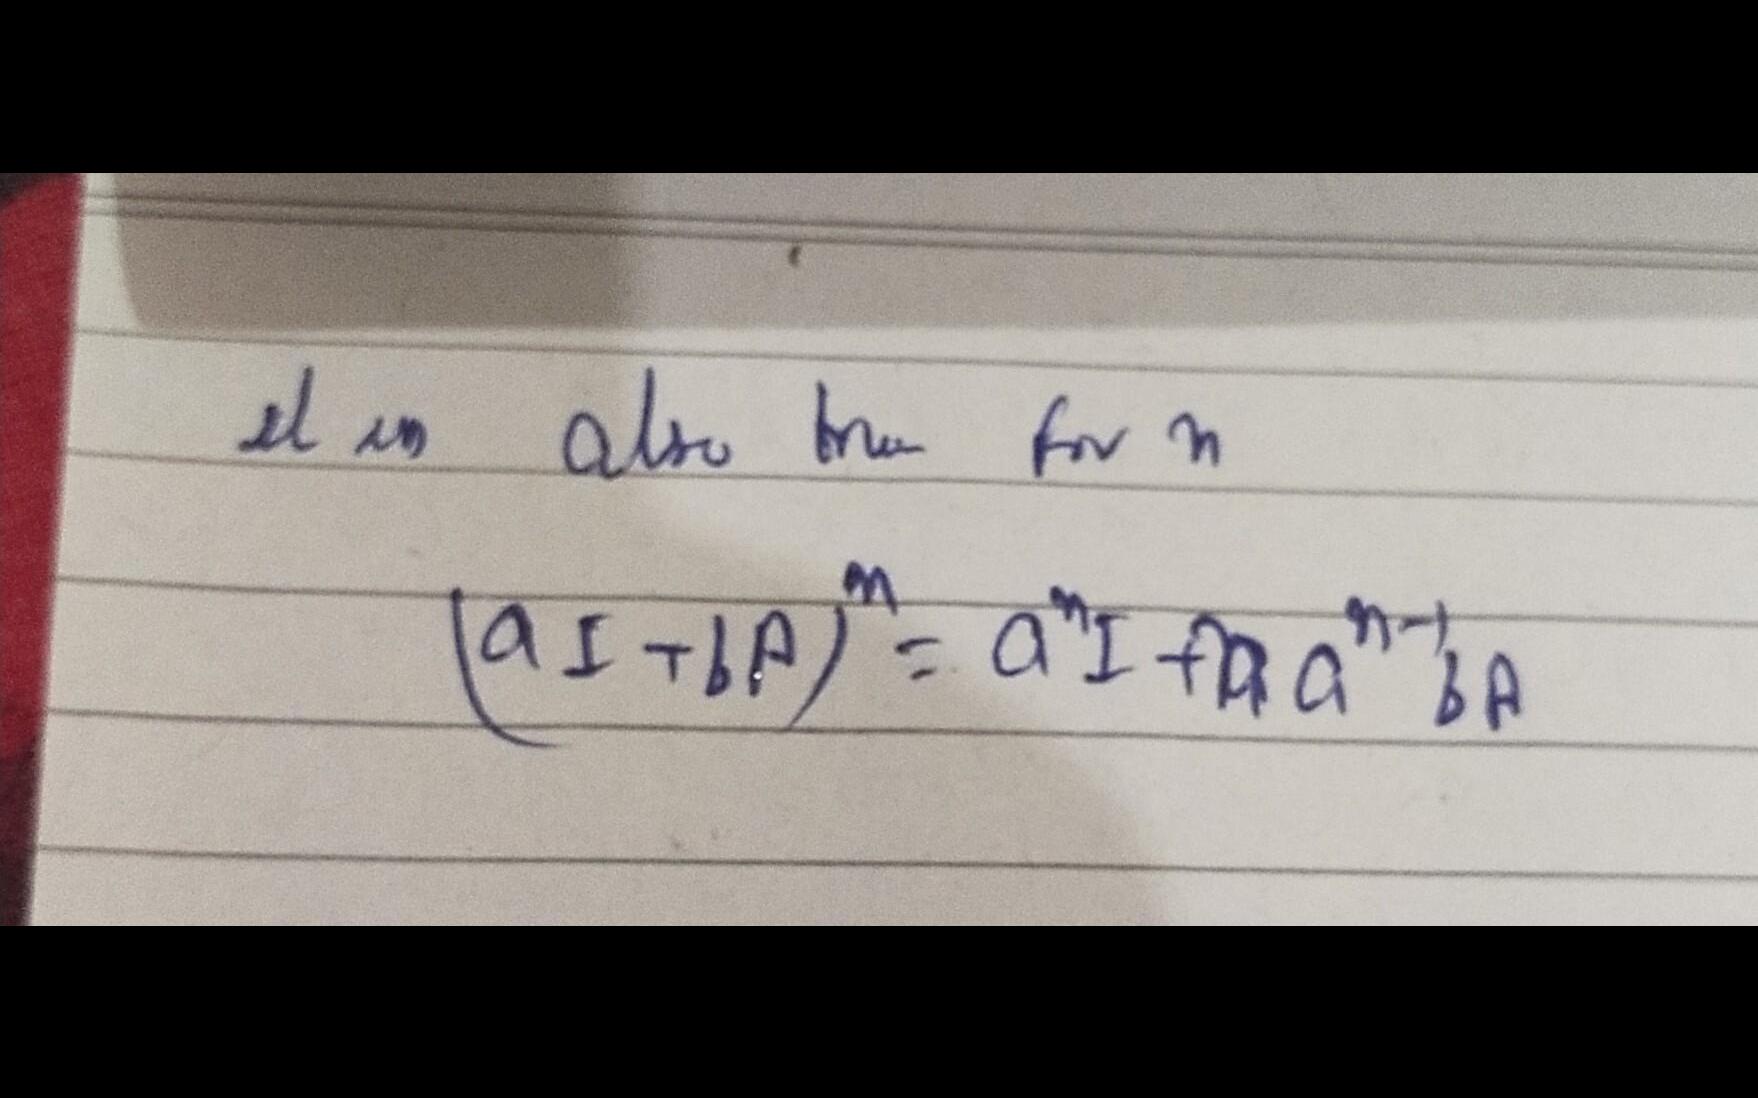 It is also true for n
(aI+bA)^n = a^n I + n a^n-1 bA